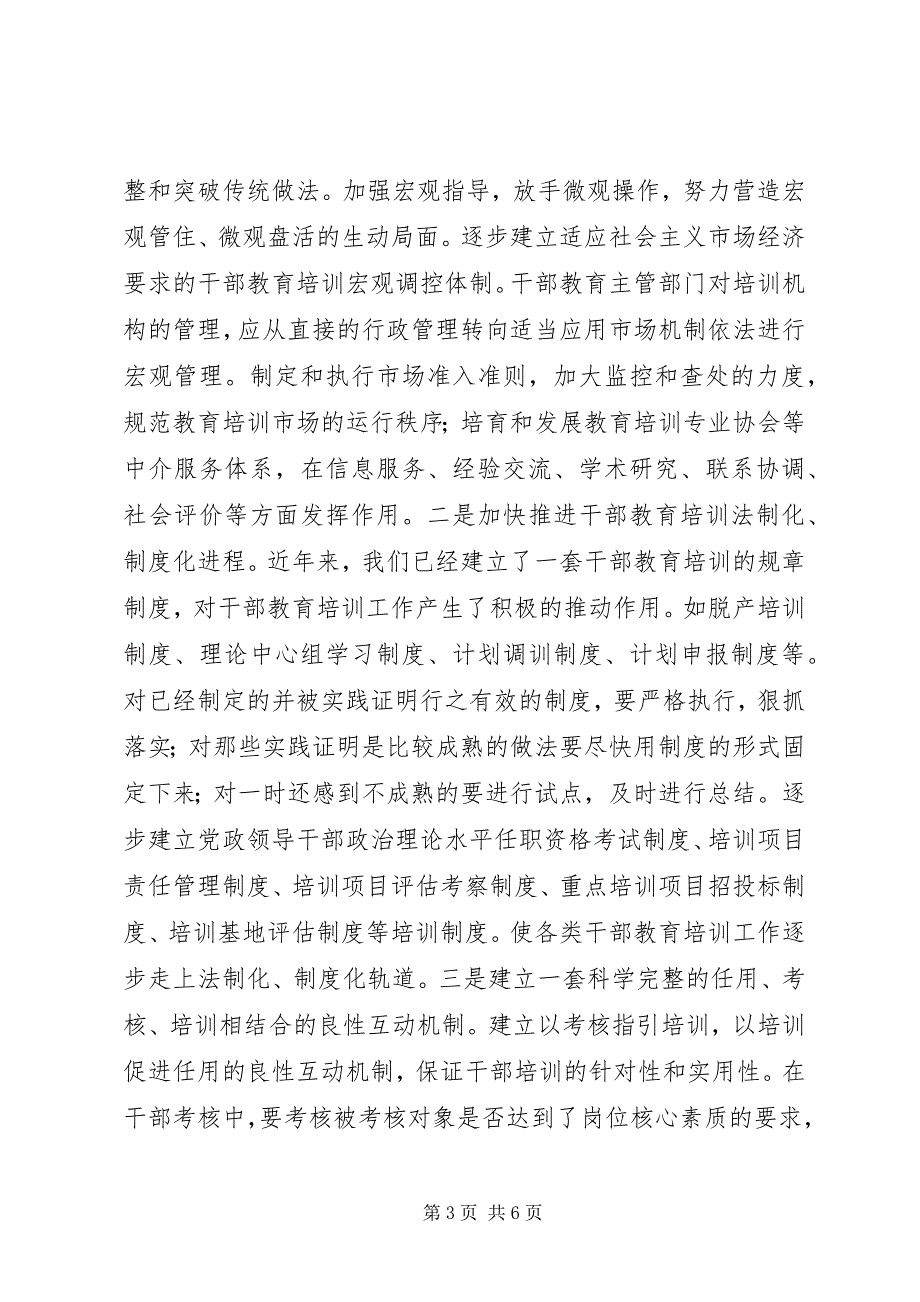 整和突破传统做法。加强宏观指导，放手微观操作，努力营造宏
观管住、微观盘活的生动局面。逐步建立适应社会主义市场经济
要求的干部教育培训宏观调控体制。干部教育主管部门对培训机
构的管理，应从直接的行政管理转向适当应用市场机制依法进行
宏观管理。制定和执行市场准入准则，加大监控和查处的力度，
规范教育培训市场的运行秩序；培育和发展教育培训专业协会等
中介服务体系，在信息服务、经验交流、学术研究、联系协调、
社会评价等方面发挥作用。二是加快推进干部教育培训法制化、
制度化进程。近年来，我们已经建立了一套干部教育培训的规章
制度，对干部教育培训工作产生了积极的推动作用。如脱产培训
制度、理论中心组学习制度、计划调训制度、计划申报制度等。
对已经制定的并被实践证明行之有效的制度，要严格执行，狠抓
落实；对那些实践证明是比较成熟的做法要尽快用制度的形式固
定下来；对一时还感到不成熟的要进行试点，及时进行总结。逐
步建立党政领导干部政治理论水平任职资格考试制度、培训项目
责任管理制度、培训项目评估考察制度、重点培训项目招投标制
度、培训基地评估制度等培训制度。使各类干部教育培训工作逐
步走上法制化、制度化轨道。三是建立一套科学完整的任用、考
核、培训相结合的良性互动机制。建立以考核指引培训，以培训
促进任用的良性互动机制，保证干部培训的针对性和实用性。在
干部考核中，要考核被考核对象是否达到了岗位核心素质的要求，
第 3 页 共 6 页